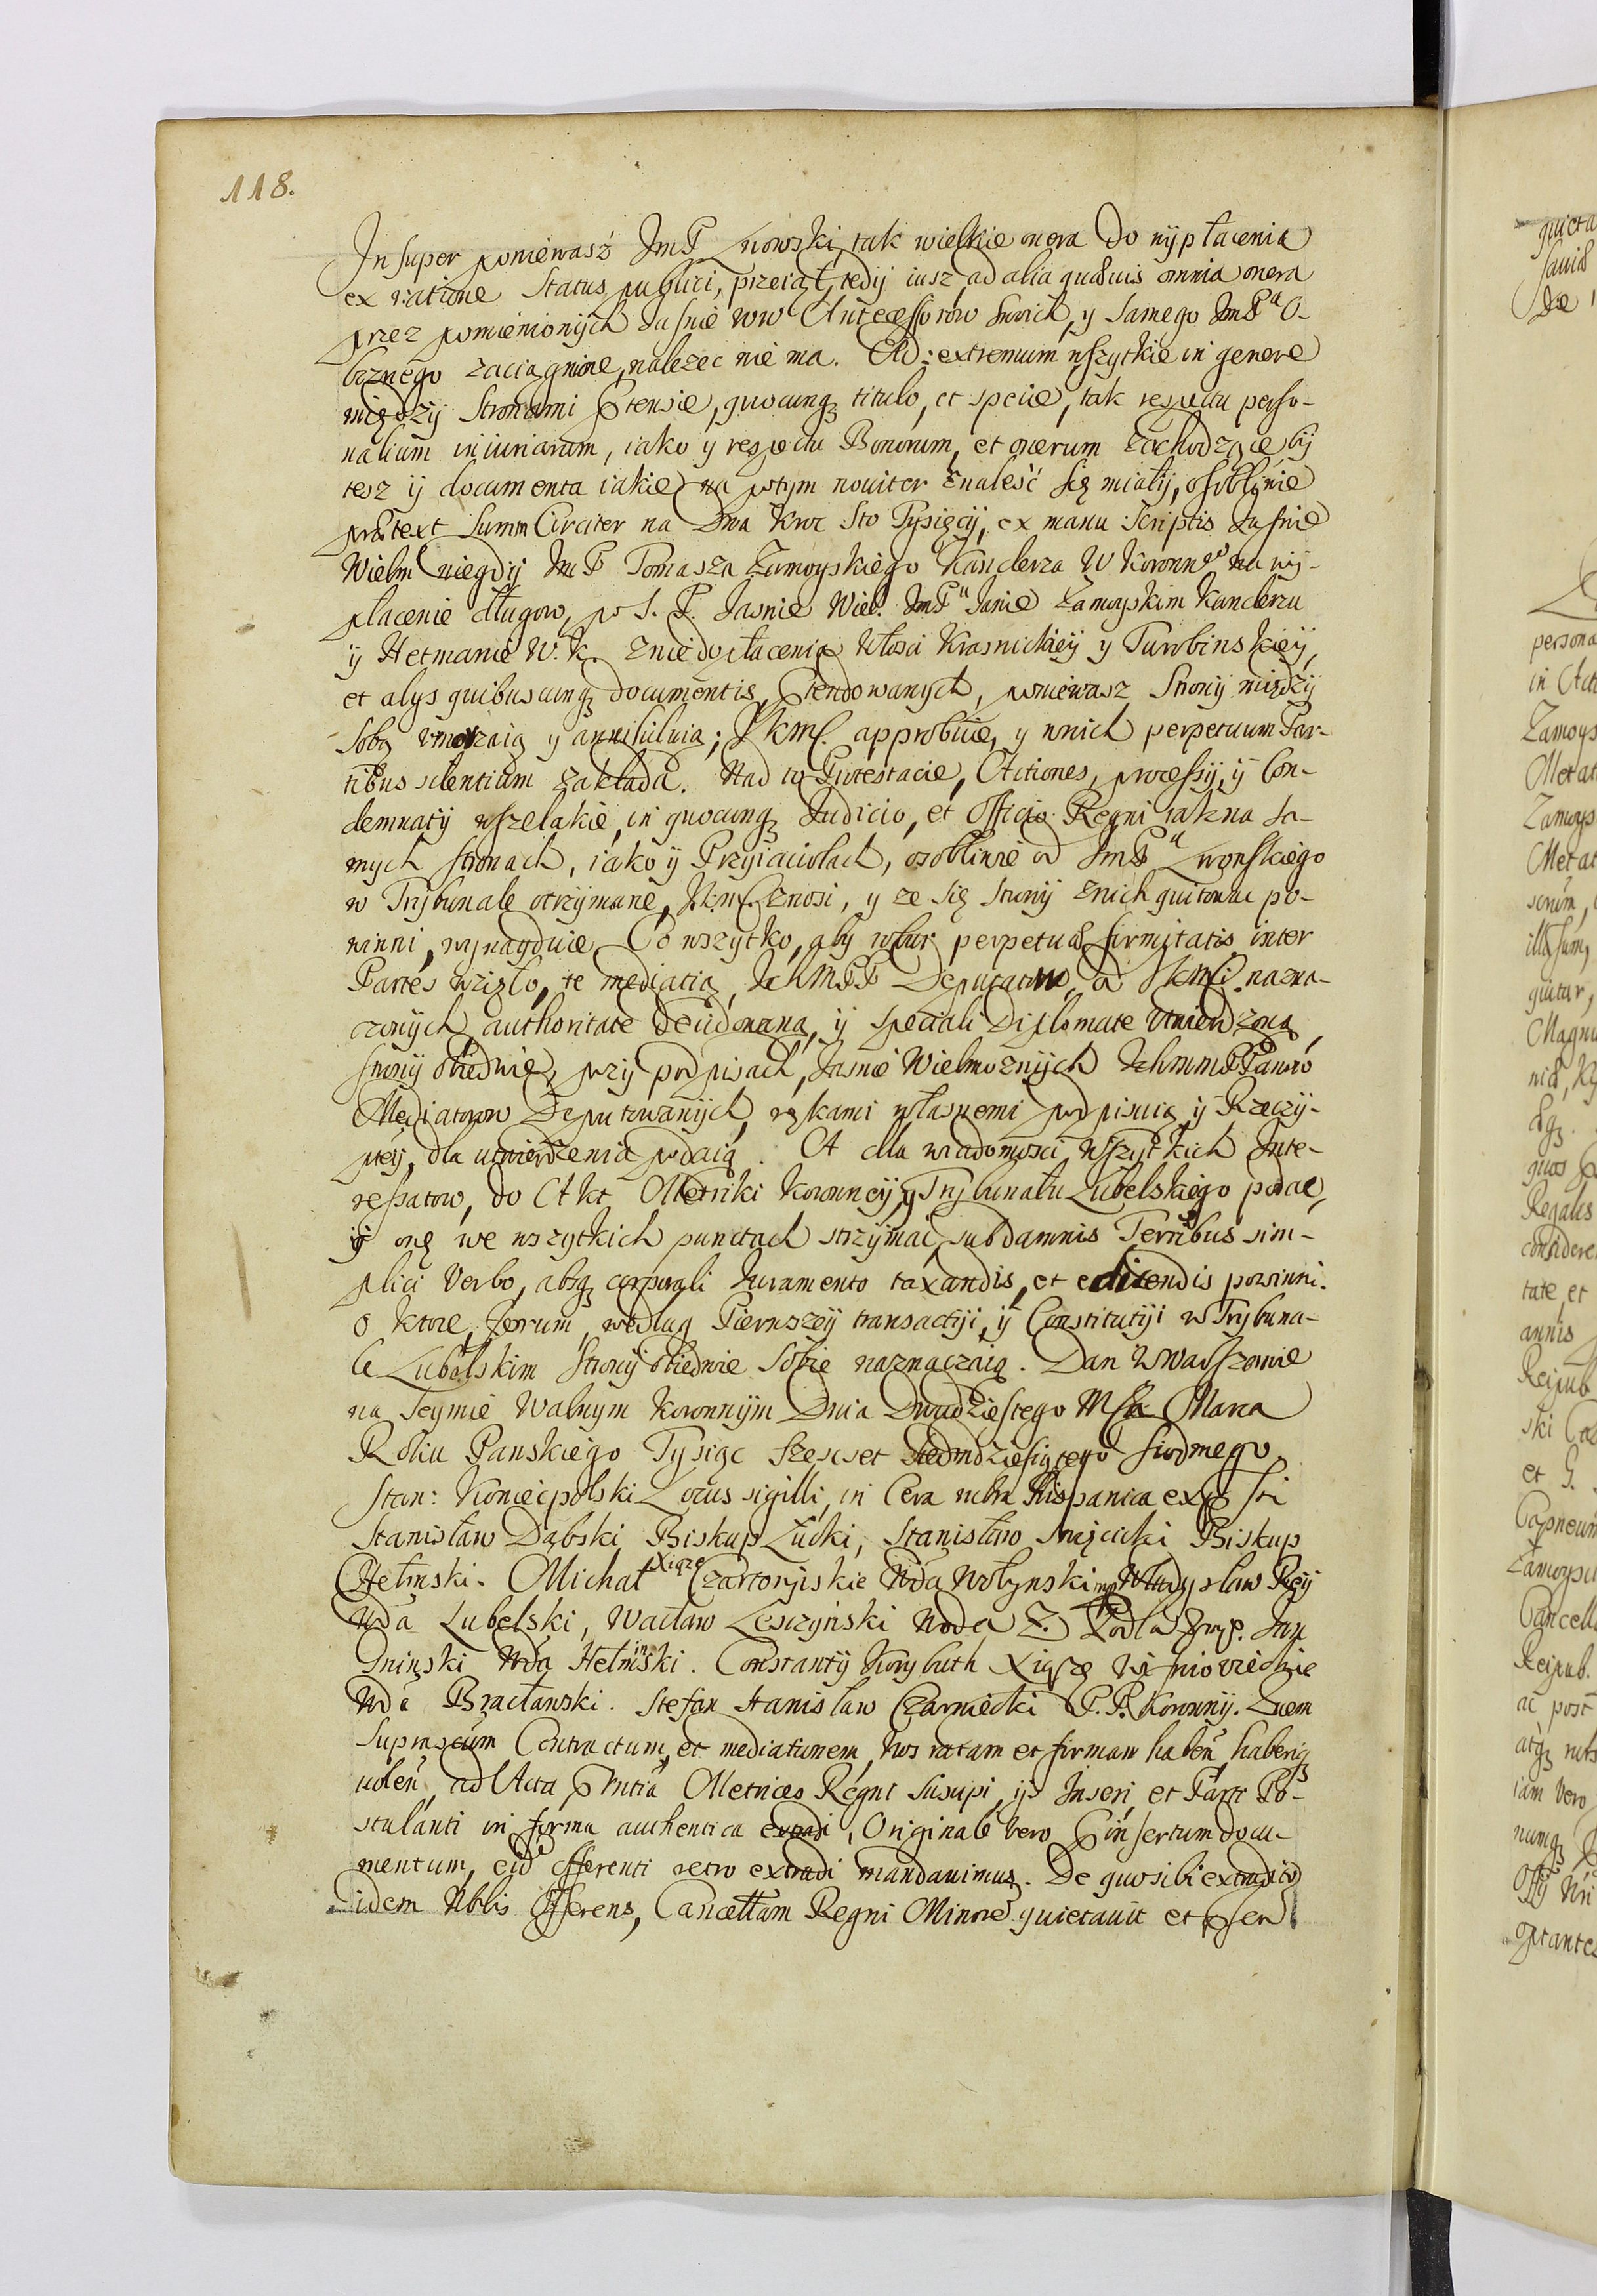 118.
In super poniewasz JmP Lwowski, tak wielkie onera do wypłacenia
ex ratione Status publici, przeiął, tedy iusz ad alia quæuis omnia onera
przez pomienionych Jasnie WW Antecessorow swoich, y samego JmPa O-
boznego zaciągnione, nalezec nie ma. Ad extremum wszytkie in genere
między Stronami ptensie, quocunq titulo, et specie, tak respectu perso-
nalium iniuriarum, iako y respectu Bonorum, et onerum zachodzące by
tesz y documenta iakie na potym nouiter znalesć się miały, osobliwie
prætext Summ Circiter na Dwa Kroc Sto Tysięcy, ex manu Scriptis Jasnie
Wielm niegdy JmP Tomasza Zamoyskiego Kanclerza W Koronne na wy-
płacenie długow, po S. P. Jasnie Wiel. JmPu Janie Zamoyskim Kanclerzu
y Hetmanie W. K. z niedopłacenia Włosci Krasnickiey y Turobinskiey,
et alys quibuscunq documentis, ptendowanych, poniewasz Strony między
sobą vmarzaią y annihiluią; JKMć. approbuie, y w nich perpetuum Par-
tibus silentium zakłada. Nad to Protestacie, Actiones, processy, y Con-
demnaty wszelakie, in quocunq Judicio, et Officio Regni tak na sa-
mych stronach, iako y Przyiaciołach, osobliwie od JmPa
w Trybunale otrzymane, JKMć znosi, y ze się strony z nich quitowac po-
winni, wynayduie. Co wszytko, aby robur perpetuæ firmitatis inter
Partes wzięło, te mediatią, IchMPP Deputatow, od JKMći nazna-
czonych authoritate decidowaną, y speciali Diplomate vtwierdzoną
strony obiedwie, przy podpisach, Jasnie Wielmoznych IchmmPPanow
Mediatorow Deputowanych, rękami własnemi podpisuią, y Rzeczy-
ptey, dla utwierdzenia podaią. A dla wiadomosci wszytkich Inte-
ressatow, do Akt Metriki Koronney, y Trybunału Lubelskiego podac,
y onę we wszytkich punctach strzymac, sub damnis Terribus sim-
plici Verbo, absq corporali Iuramento taxandis, et edicendis powinni.
O ktore, forum, według Pierwszey transactiy, y Constitutiy w Trybuna-
le Lubelskim strony obiedwie sobie naznaczaią. Dan w Warszawie
na Seymie Walnym Koronnym Dnia Dwudziestego Msca Marca
Roku Panskiego Tysiąc szescset siedmdziesiątego siodmego
Stan: Koniecpolski Locus sigilli, in Cera rubra Hispanica
Stanisław Dąbski Biskup Łucki, Stanisław Swięcicki Biskup
Chełmski. Michał Xiąze Czartoryiskie Wda Wołynski mp Władysław Rey
Wda Lubelski, Wacław Leszczynski Woda Z. Podla Jan
Gninski Wda Hełminski. Constanty Korybuth Xiąze Wisniowieckie
Wda Bracławski. Stefan Stanisław Czarniecki P.P. Koronny. Quem
suprascum Contractum, et mediationem, Nos ratam et firmam haben, haberiq
uolen, ad Acta pntia Metrices Regni susupi, ys Inseri, et Parti Po-
stulanti in forma authentica extradi, Originale vero p insertum docu-
mentum, eid offerenti retro extradi mandauimus. De quo sibi extradito
idem Nblis Offerens, Cancellam Regni Minore quietauit et